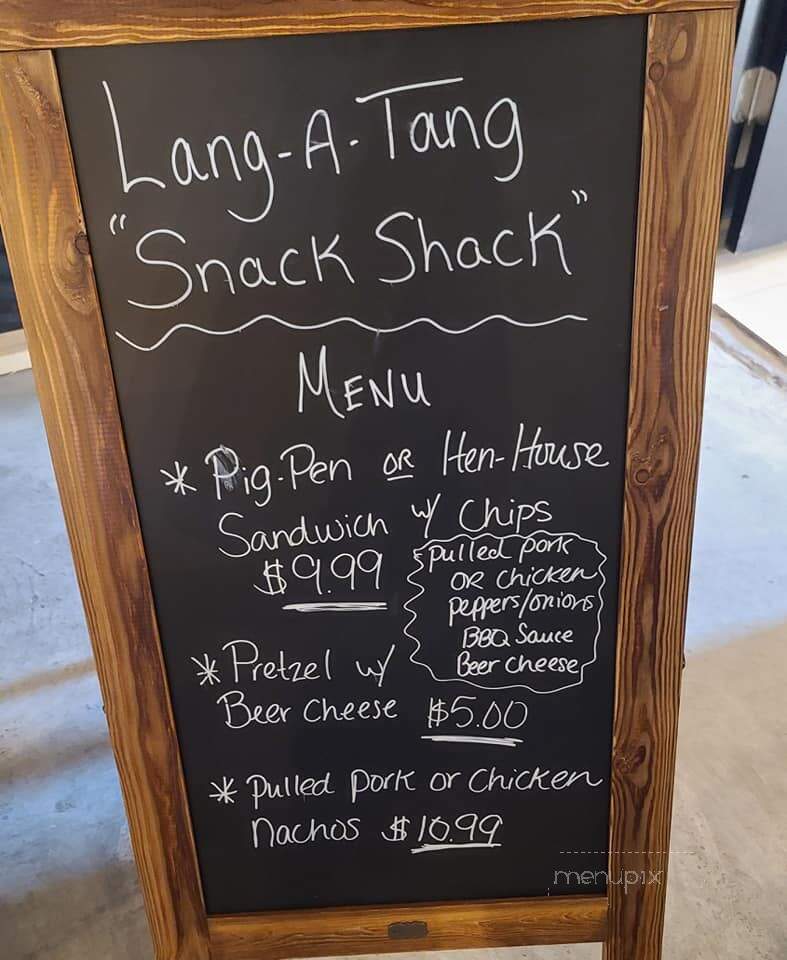 Lang-A-Tang
"Snack Shack"
MENU
* Pig-Pen OR Hen-House
Sandwich w/ Chips
$9.99
Pulled pork
OR chicken
peppers/onions
BBQ Sauce
Beer cheese
* Pretzel w/
Beer Cheese $5.00
* Pulled pork or chicken
Nachos $10.99
menupix